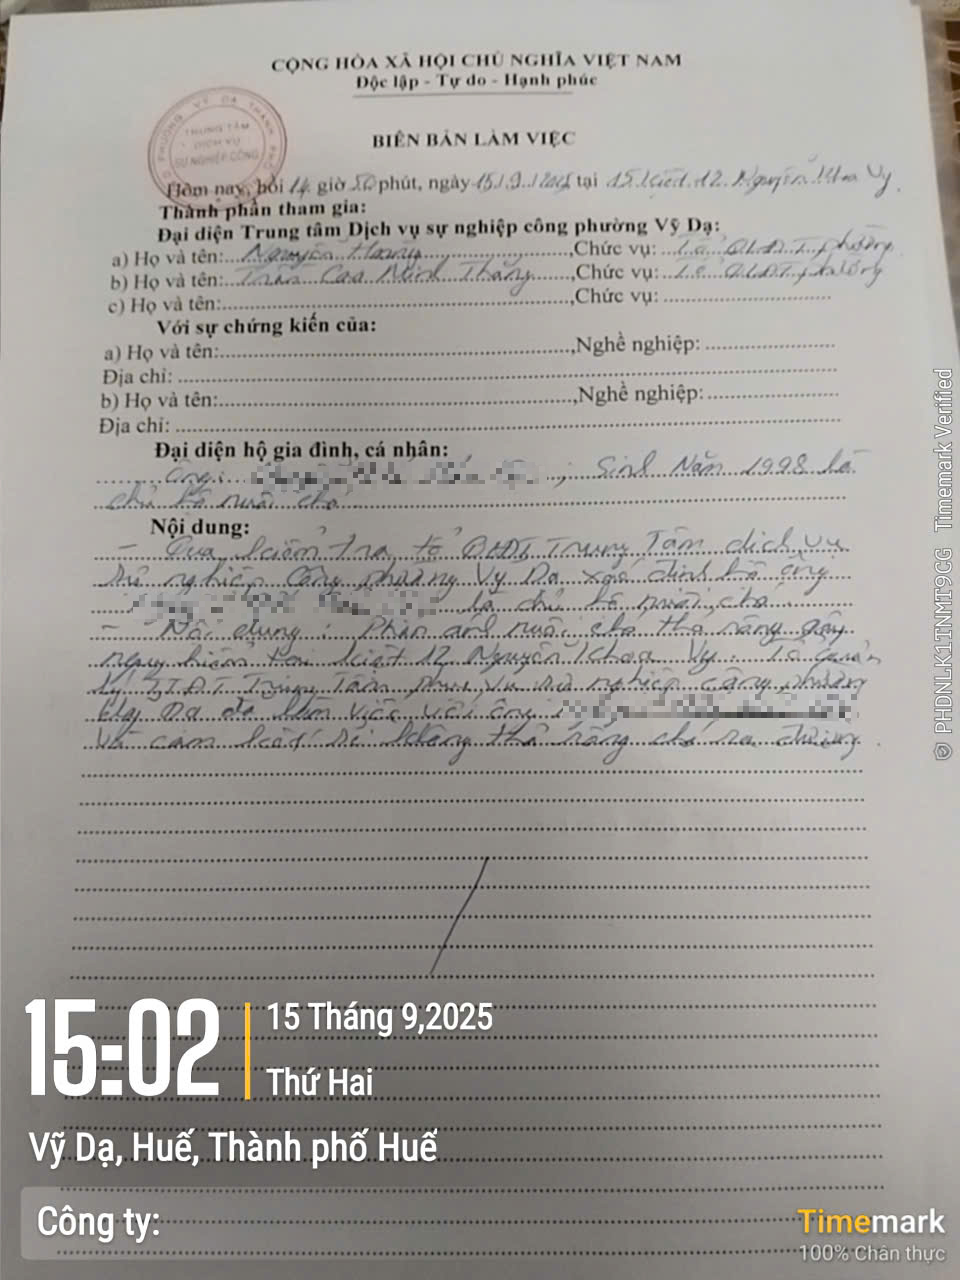 CỘNG HÒA XÃ HỘI CHỦ NGHĨA VIỆT NAM
Độc lập - Tự do - Hạnh phúc
PHƯỜNG VỸ DẠ THÀNH PHỐ
TRUNG TÂM
DỊCH VỤ
SỰ NGHIỆP CÔNG
BIÊN BẢN LÀM VIỆC
Hôm nay, hồi 14 giờ 50 phút, ngày 15/9/2025 tại 15 kiệt 12 Nguyễn Khoa Vy
Thành phần tham gia:
Đại diện Trung tâm Dịch vụ sự nghiệp công phường Vỹ Dạ:
a) Họ và tên: Nguyễn Hoàng, Chức vụ: Tổ QLĐT phường
b) Họ và tên: Trần Cao Minh Thắng, Chức vụ: Tổ QLĐT phường
c) Họ và tên:, Chức vụ:
Với sự chứng kiến của:
a) Họ và tên:, Nghề nghiệp:
Địa chỉ:
b) Họ và tên:, Nghề nghiệp:
Địa chỉ:
Đại diện hộ gia đình, cá nhân:
Ông: ; Sinh Năm 1998 là
chủ hộ nuôi chó
Nội dung:
- Qua kiểm tra tổ QLĐT Trung Tâm dịch vụ
sự nghiệp công phường Vỹ Dạ xác định hộ ông
là chủ hộ nuôi chó
- Nội dung: Phản ánh nuôi chó thả rông gây
nguy hiểm tại kiệt 12 Nguyễn Khoa Vy. Tổ quản
lý TTĐT Trung Tâm dịch vụ sự nghiệp công phường
Vỹ Dạ đã làm việc với ông:
và cam kết sẽ không thả rông chó ra đường.
15:02
15 Tháng 9,2025
Thứ Hai
Vỹ Dạ, Huế, Thành phố Huế
Công ty:
Timemark
100% Chân thực
© PHDNLK1TNMT9CG Timemark Verified